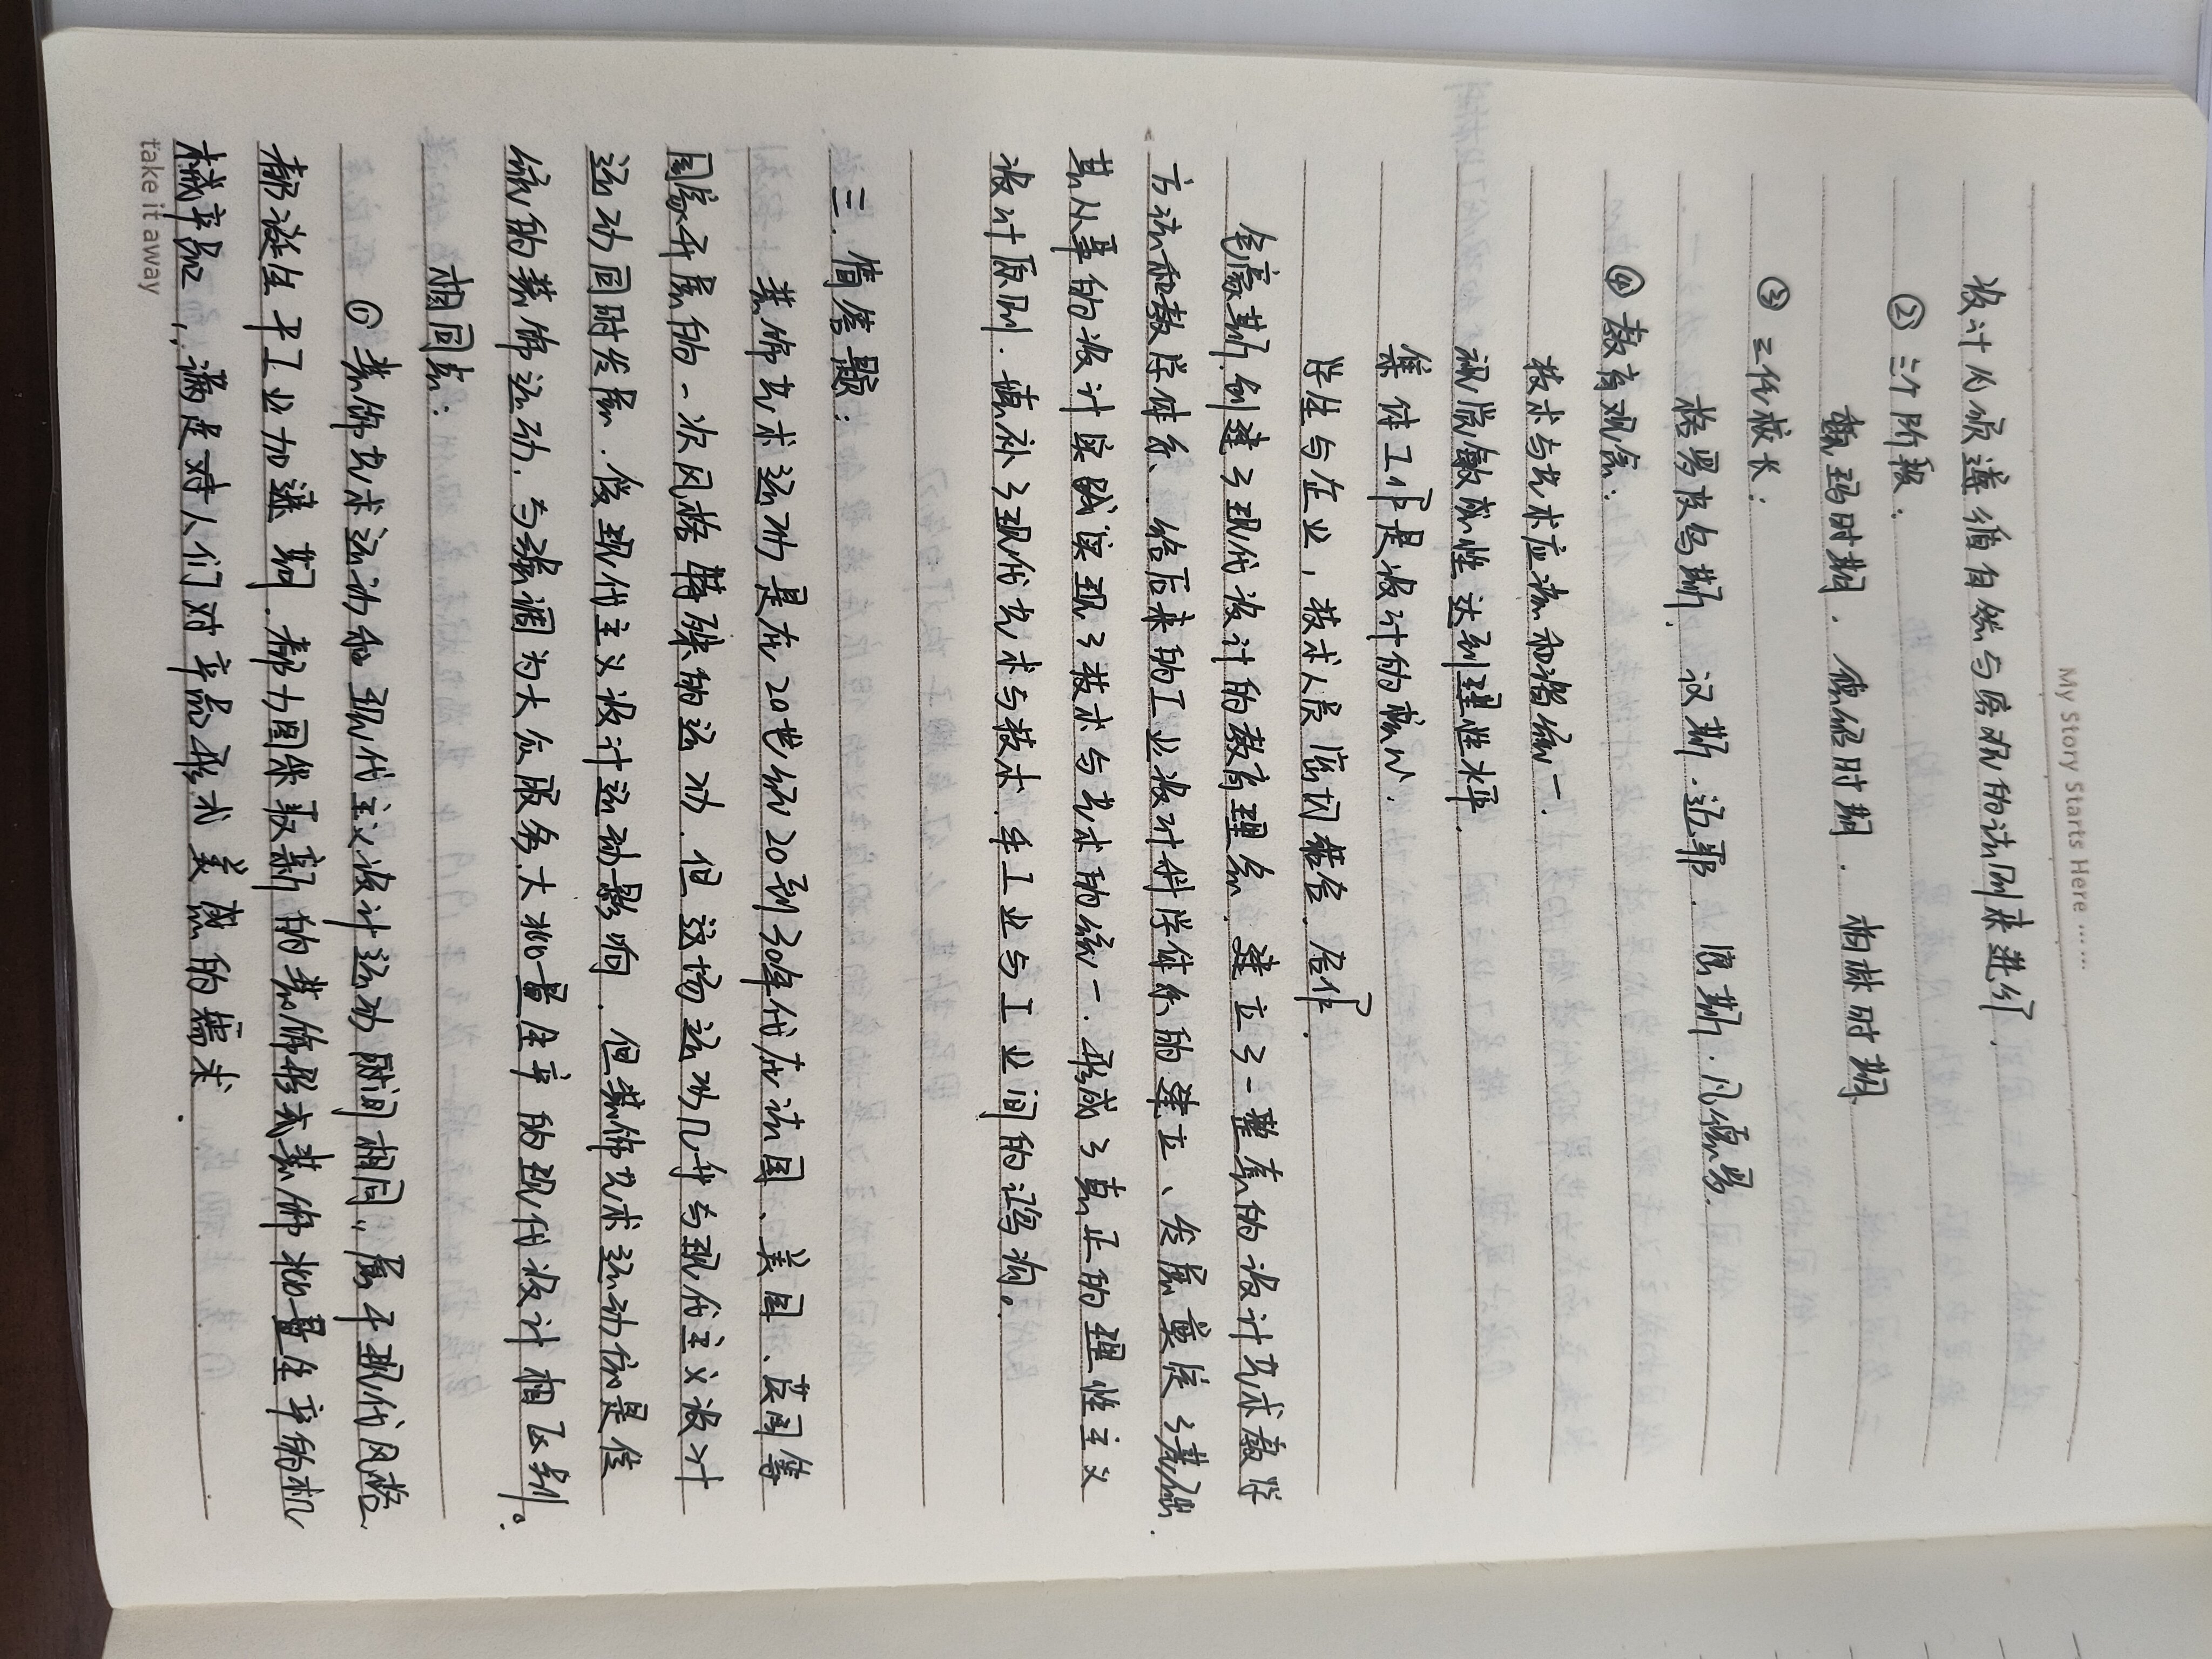 My Story Starts Here ......
设计必须遵循自然与客观的法则来进行.
② 三个阶段.
魏玛时期. 德绍时期. 柏林时期.
③ 三任校长:
格罗皮乌斯. 汉斯·迈耶. 密斯·凡德罗.
④ 教育观念:
技术与艺术应该和谐统一.
视觉敏感性达到理性水平.
集体工作是设计的核心.
学生与企业,技术人员密切结合.合作.
包豪斯创建了现代设计的教育理念,建立了一整套的设计艺术教学
方法和教学体系、给后来的工业设计科学体系的建立、发展奠定了基础.
其从事的设计实践实现了技术与艺术的统一.形成了真正的理性主义
设计原则.填补了现代艺术与技术.手工业与工业间的鸿沟。
三. 简答题:
装饰艺术运动是在20世纪20到30年代在法国、美国、英国等
国家开展的一次风格特殊的运动.但这场运动几乎与现代主义设计
运动同时发展.受现代主义设计运动影响.但装饰艺术运动依是传
统的装饰运动.与强调为大众服务大批量生产的现代设计相区别。
相同点:
① 装饰艺术运动和现代主义设计运动时间相同,属于现代风格
都诞生于工业加速期.都力图采取新的装饰形式装饰批量生产的机
械产品,满足对人们对产品形式美感的需求.
take it away